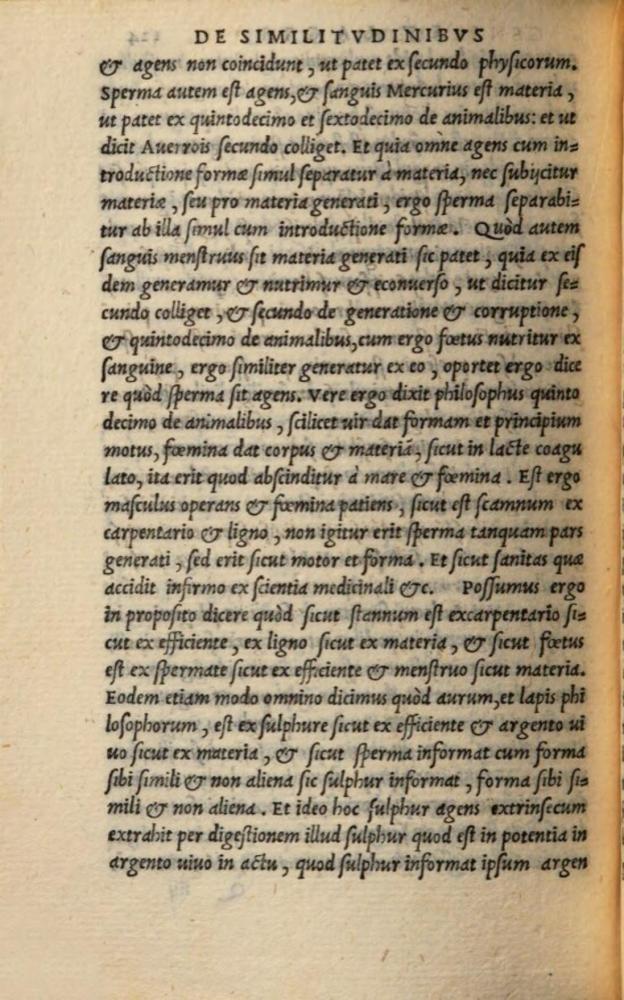 DE SIMILITVDINIBVS
& agens non coincidunt, ut patet ex ſecundo phyſicorum.
Sperma autem eſt agens, & ſanguis Mercurius eſt materia,
ut patet ex quintodecimo et ſextodecimo de animalibus: et ut
dicit Auerrois ſecundo colliget. Et quia omne agens cum in=
troductione formæ ſimul ſeparatur à materia, nec ſubijcitur
materiæ, ſeu pro materia generati, ergo ſperma ſeparabi=
tur ab illa ſimul cum introductione formæ. Quòd autem
ſanguis menſtruus ſit materia generati ſic patet, quia ex eiſ
dem generamur & nutrimur & econuerſo, ut dicitur ſe=
cundo colliget, & ſecundo de generatione & corruptione,
& quintodecimo de animalibus, cum ergo fœtus nutritur ex
ſanguine, ergo ſimiliter generatur ex eo, oportet ergo dice
re quòd ſperma ſit agens. Vere ergo dixit philoſophus quinto
decimo de animalibus, ſcilicet uir dat formam et principium
motus, fœmina dat corpus & materiā, ſicut in lacte coagu
lato, ita erit quod abſcinditur à mare & fœmina. Eſt ergo
maſculus operans & fœmina patiens, ſicut eſt ſcamnum ex
carpentario & ligno, non igitur erit ſperma tanquam pars
generati, ſed erit ſicut motor et forma. Et ſicut ſanitas quæ
accidit infirmo ex ſcientia medicinali &c. Poſſumus ergo
in propoſito dicere quòd ſicut ſtannum eſt excarpentario ſi=
cut ex efficiente, ex ligno ſicut ex materia, & ſicut fœtus
eſt ex ſpermate ſicut ex efficiente & menſtruo ſicut materia.
Eodem etiam modo omnino dicimus quòd aurum, et lapis phi
loſophorum, eſt ex ſulphure ſicut ex efficiente & argento ui
uo ſicut ex materia, & ſicut ſperma informat cum forma
ſibi ſimili & non aliena ſic ſulphur informat, forma ſibi ſi=
mili & non aliena. Et ideo hoc ſulphur agens extrinſecum
extrahit per digeſtionem illud ſulphur quod eſt in potentia in
argento uiuo in actu, quod ſulphur informat ipſum argen